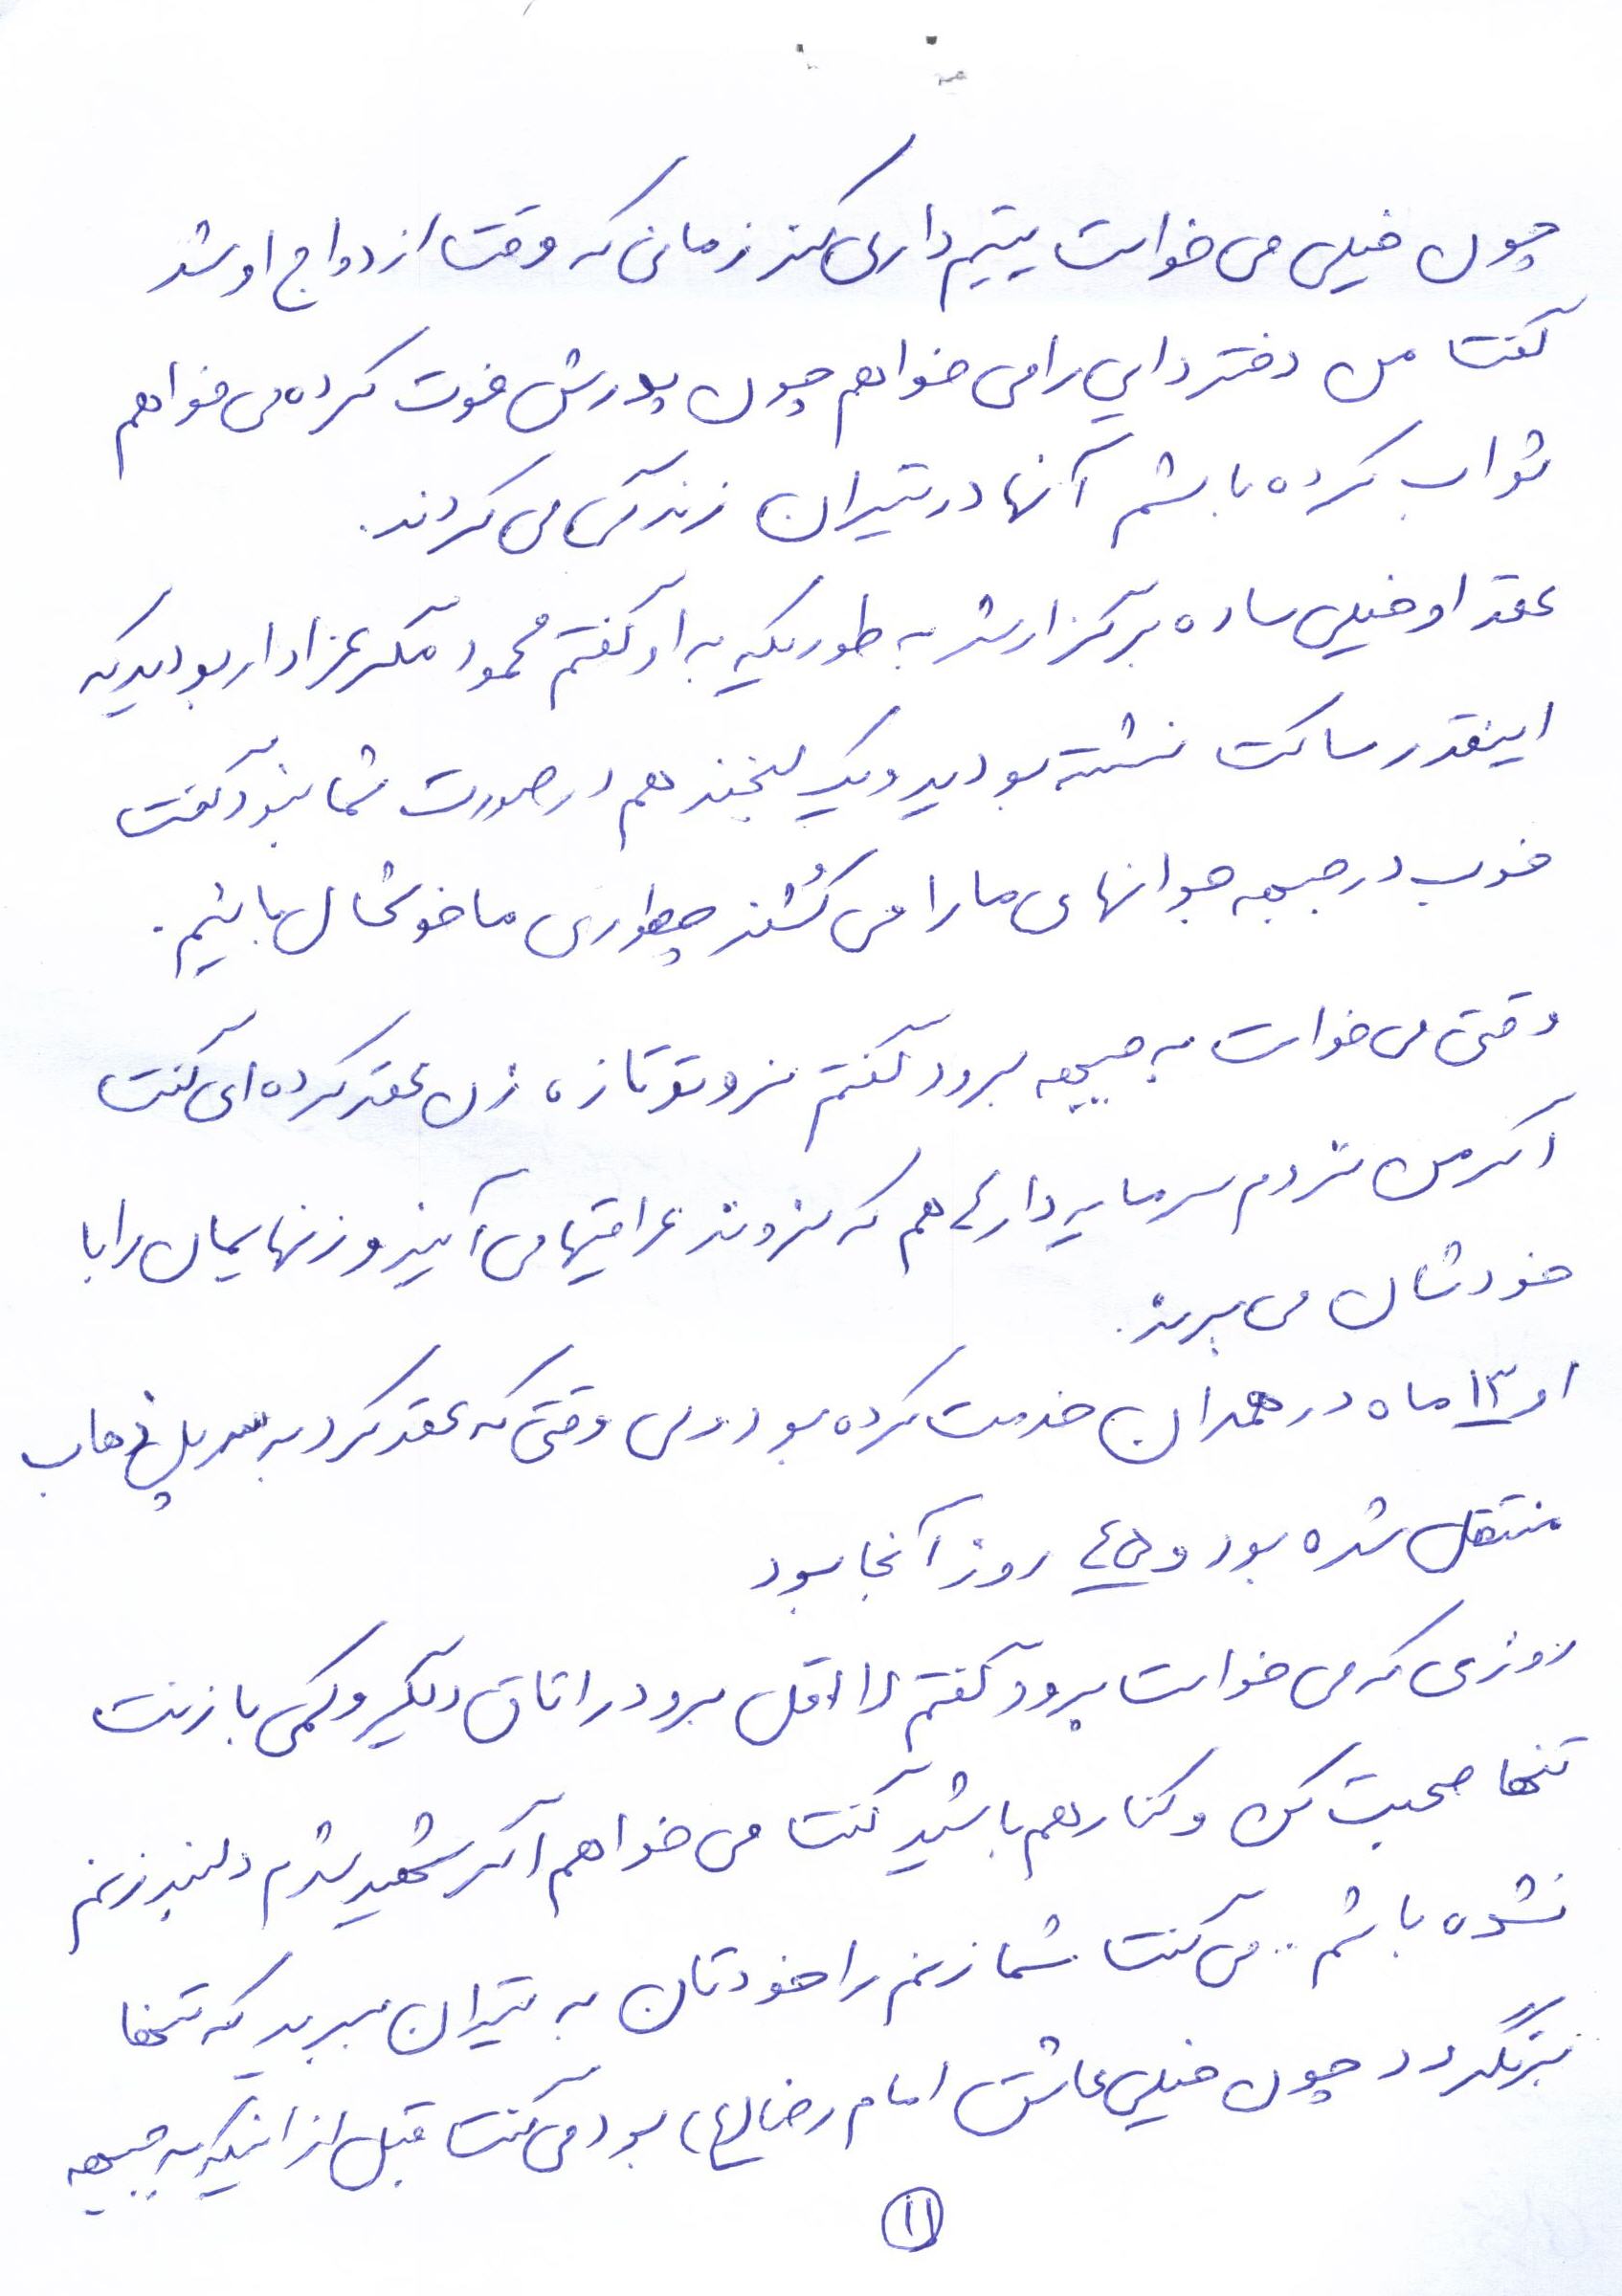 چون خیلی می خواست یتیم داری کند زمانی که وقت ازدواج او شد
گفت من دختر دایی را می خواهم چون پدرش فوت کرده می خواهم
ثواب کرده باشم آنها در تهران زندگی می کردند.
عقد او خیلی ساده برگزار شد به طوریکه به او گفتم محمود مگر عزادار بودید که
اینقدر ساکت نشسته بودید و یک لبخند هم در صورت شما نبود گفت
خوب در جبهه جوانهای ما را می کُشند چطوری ما خوشحال باشیم.
وقتی می خواست به جبهه برود گفتم نرو تو تازه زن عقد کرده ای گفت
اگر من نروم سرمایه دارها هم که نروند عراقیها می آیند و زنهایمان را با
خودشان می برند.
او ۱۳ ماه در همدان خدمت کرده بود ولی وقتی که عقد کرد به سرپل ذهاب
منتقل شده بود و ۴۵ روز آنجا بود
روزی که می خواست برود گفتم لااقل برو در اتاق دیگر و کمی با زنت
تنها صحبت کن و کنار هم باشید گفت می خواهم اگر شهید شدم دلبند زنم
نشده باشم .. می گفت شما زنم را خودتان به تهران ببرید که تنها
برنگردد چون خیلی عاشق امام رضا (ع) بود می گفت قبل از اینکه به جبهه
۱۱